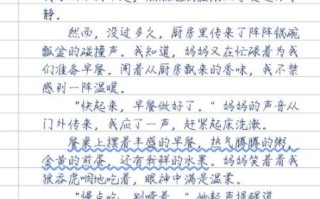 静。
然而，没过多久，厨房里传来了阵阵锅碗
瓢盆的碰撞声。我知道，妈妈又在忙碌着为我
们准备早餐。闻着从厨房飘来的香味，我不禁
感到一阵温暖。
“快起来，早餐做好了。”妈妈的声音从
门外传来，我应了一声，赶紧起床洗漱。
餐桌上摆着丰盛的早餐，热气腾腾的粥，
金黄的煎蛋，还有新鲜的水果。妈妈笑着看我
狼吞虎咽地吃着，眼神中满是温柔。
“慢点吃，别噎着。”她轻声提醒道